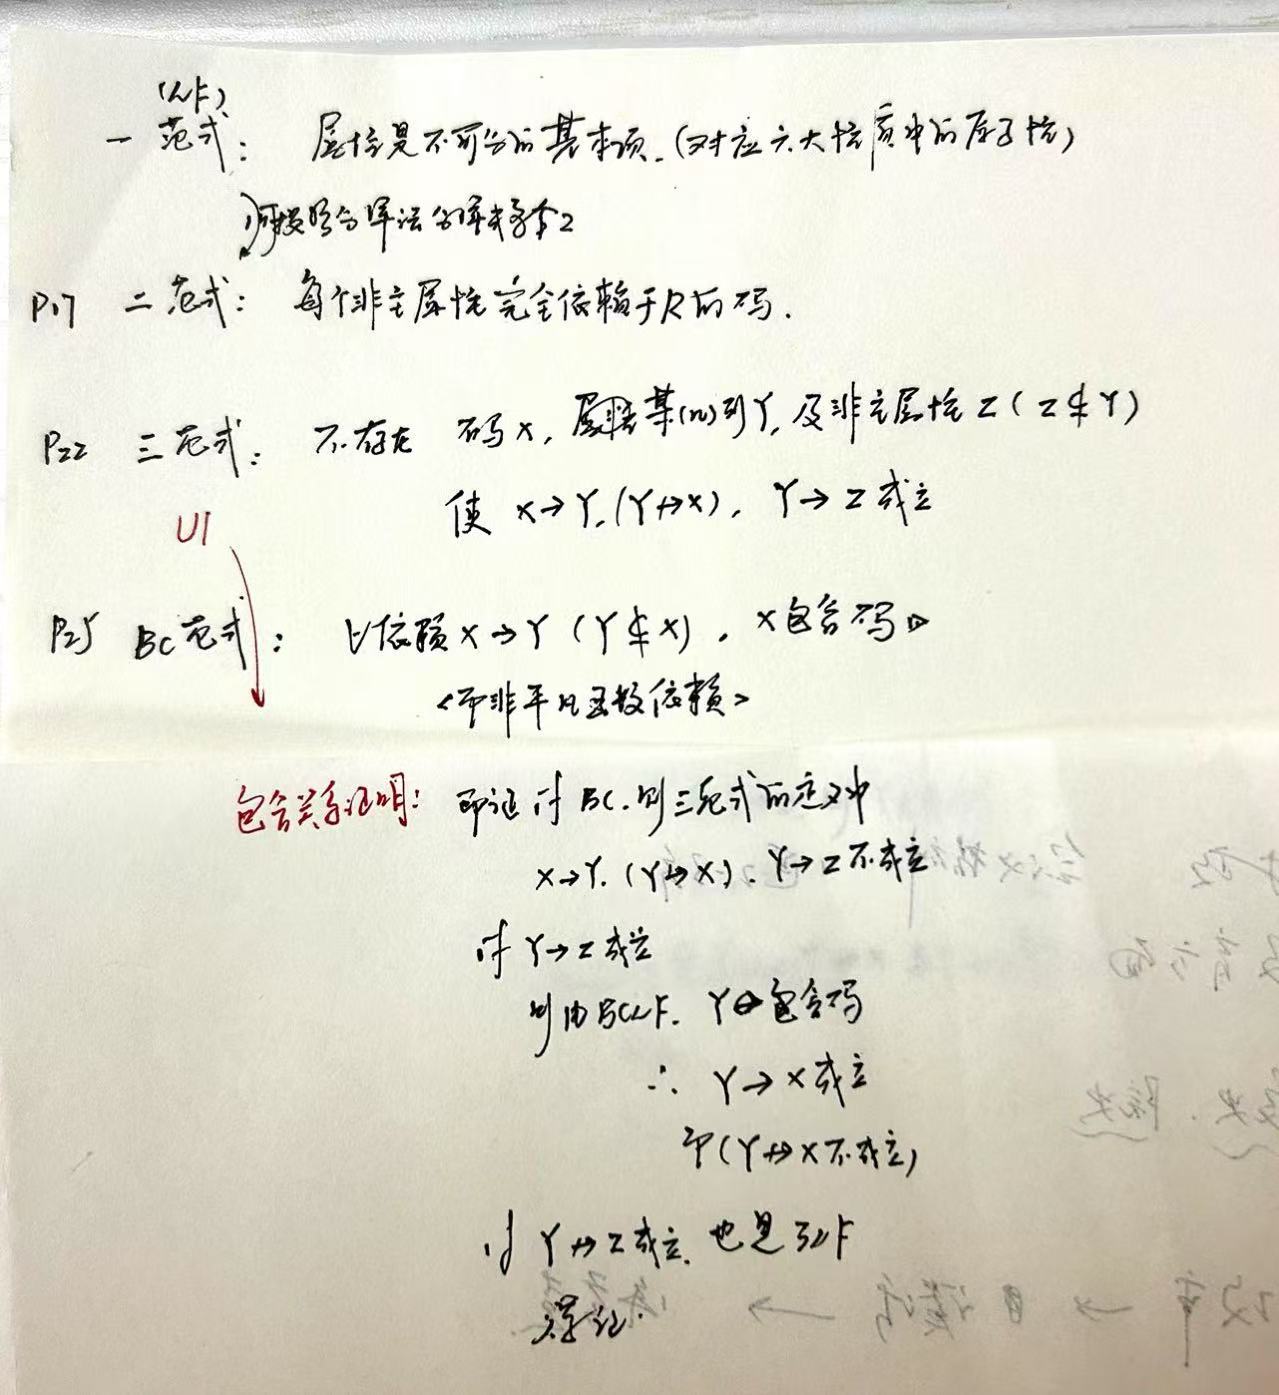 (NF)
一范式： 属性是不可分的基本项.(对应六大性质中的原子性)
分解
P17 二范式： 每个非主属性完全依赖于R的码.
P22 三范式： 不存在 码X, 某(n)列Y, 及非主属性Z(Z⊄Y)
使 X→Y,(Y↛X), Y→Z成立
U1
P25 BC范式： ∀依赖X→Y(Y⊄X), X包含码
<即非平凡函数依赖>
包含关系证明： 即证 if BC. 则三范式的定义中
X→Y.(Y↛X). Y→Z不成立
if Y→Z成立
则由BCNF. Y包含码
∴ Y→X成立
即(Y↛X不成立)
if Y↛Z成立. 也是3NF
得证.